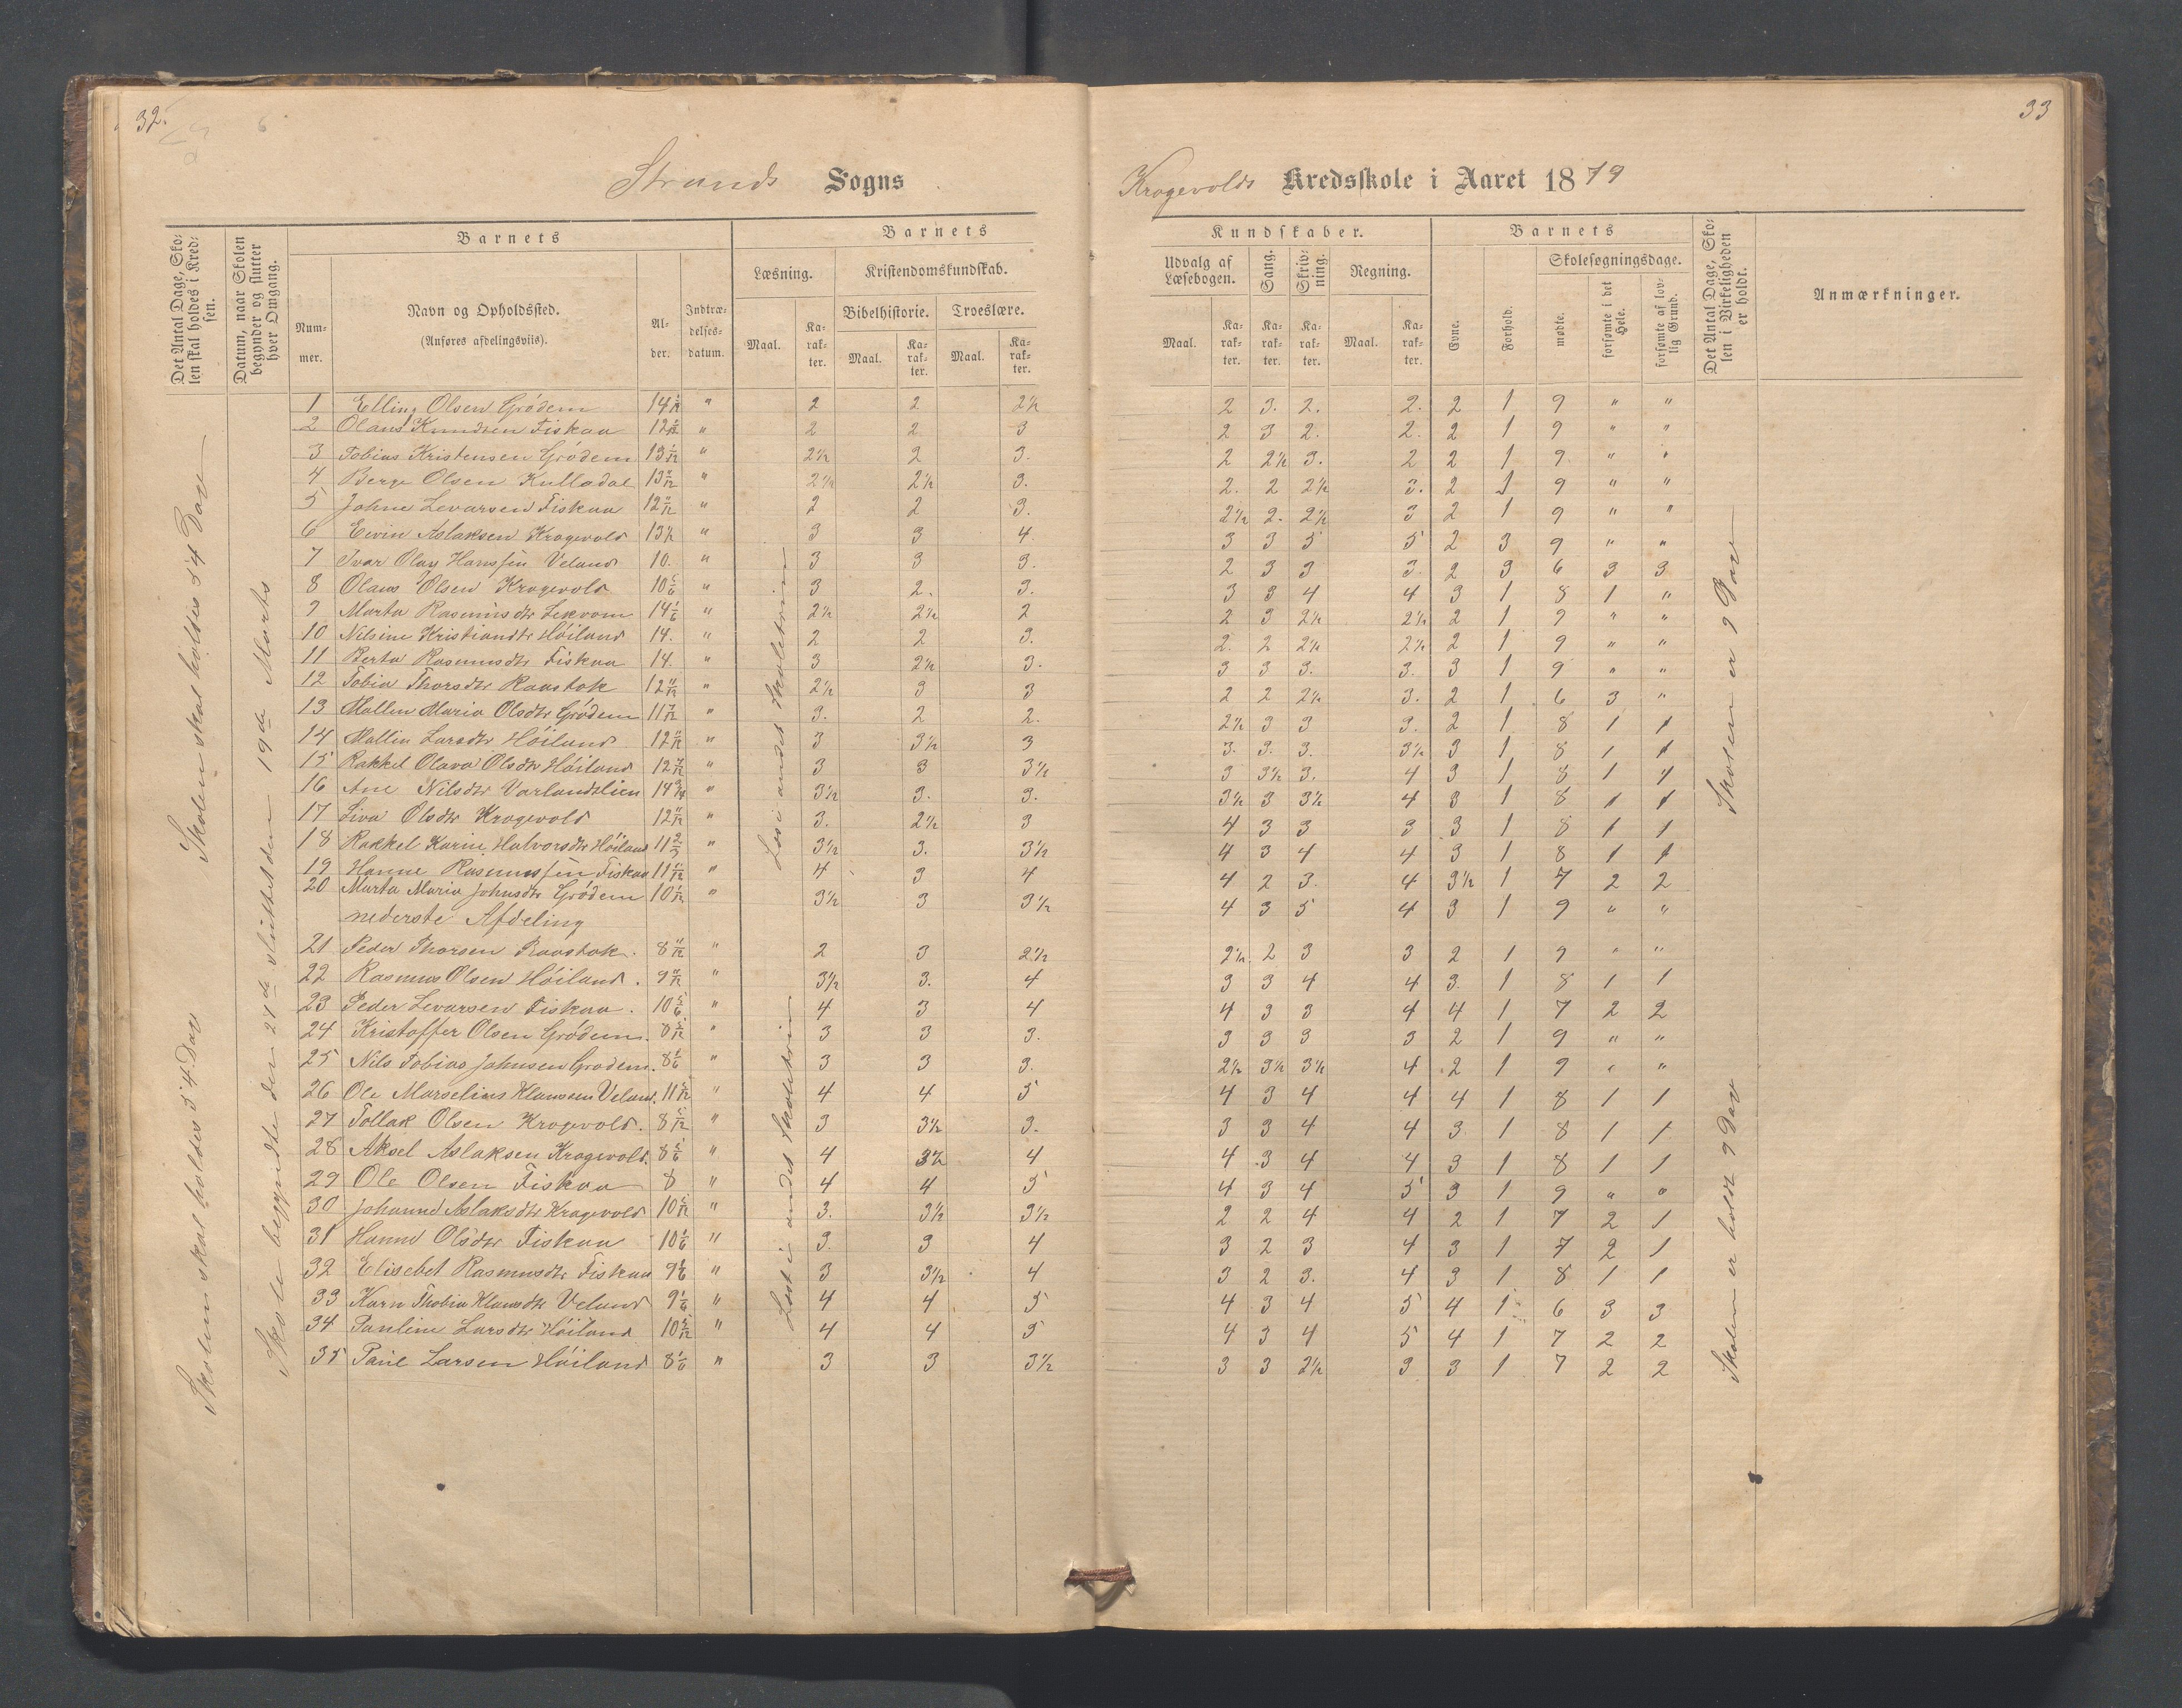 32.
33
Strands Sogns
Krogevolds Kredsskole i Aaret 1879
Det Antal Dage, Skolen skal holdes i Kredsen.
Datum, naar Skolen begynder og slutter hver Omgang.
Barnets
Nummer.
Navn og Opholdssted.
(Anføres afdelingsviis).
Alder.
Indtrædelsesdatum.
Barnets
Læsning.
Kristendomskundskab.
Bibelhistorie.
Troeslære.
Maal.
Karakter.
Maal.
Karakter.
Maal.
Karakter.
Kundskaber.
Udvalg af Læsebogen.
Sang.
Skrivning.
Regning.
Maal.
Karakter.
Karakter.
Karakter.
Maal.
Karakter.
Barnets
Evne.
Forhold.
Skolesøgningsdage.
mødte.
forsømte i det Hele.
forsømte af lovlig Grund.
Det Antal Dage, Skolen i Virkeligheden er holdt.
Anmærkninger.
Skolen skal holdes i 4 Dage
Skolen skal holdes i 4 Dage
Skole begyndte den 21de sluttet den 19de Marts
Læst i andet Skoletrin
Læst i andet Skoletrin
Skolen er 9 Dage
Skolen er holdt 9 Dage
1 Elling Olsen Grödem " 2 2 2½ 2 3. 2. 2. 2 1 9 " "
2 Olaus Knudsen Fiskaa " 2 2 3 2 3 2. 2. 2 1 9 " "
3 Tobias Kristensen Grödem " 2½ 2 3. 2 2½ 3. 2 2 1 9 " "
4 Berge Olsen Kulladal " 2½ 2½ 3. 2. 2 2½ 3. 2 1 9 " "
5 Johne Levarsen Fiskaa " 2 2 3. 2½ 2. 2½ 3 2 1 9 " "
6 Eivin Aslaksen Krogevold " 3 3 4 3 3 5 5 2 3 9 " "
7 Ivar Olay Hanssen Veland 10. " 3 3 3. 2 3 3 3. 2 3 6 3 3
8 Olaus Olsen Krogevold " 3 2. 3. 3 3 4 4 3 1 8 1 "
9 Marta Rasmusdtr " 2½ 2½ 2 2 3 2½ 2½ 2 1 9 " "
10 Nilsine Kristiandtr Höiland 14. " 2 2 3. 2. 2 2½ 2½ 2 1 9 " "
11 Berta Rasmusdtr Fiskaa 14. " 3 2½ 3. 3 3 3. 3. 3 1 9 " "
12 Tobia Thorsdtr Raustok " 2½ 3 3 2 2 2½ 3. 2 1 6 3 "
13 Mallen Maria Olsdtr Grödem " 3. 2 2. 2½ 3 3 3. 2 1 8 1 1
14 Mallin Larsdtr Höiland " 3 3½ 3 3. 3. 3. 3½ 3 1 8 1 1
15 Rakkel Olava Olsdtr Höiland " 3 3 3½ 3 3½ 3. 4 3 1 8 1 1
16 Ane Nilsdtr Varlandslien " 3½ 3. 3. 3½ 3 3½ 4 3 1 8 1 1
17 Siva Olsdtr Krogevold " 3. 2½ 3 4 3 3 3 3 1 8 1 1
18 Rakkel Karine Halvorsdtr Höiland " 3½ 3. 3½ 4 3 4 4 3 1 8 1 1
19 Hanne Rasmussen Fiskaa " 4 3 4 4 2 3. 4 3½ 1 7 2 2
20 Marta Maria Johnsdtr Grödem " 3½ 3 3½ 4 3 5 4 3 1 9 " "
nederste Afdeling
21 Peder Thorsen Raustok. " 2 3 2½ 2½ 2 3 3 2 1 9 " "
22 Rasmus Olsen Höiland. " 3½ 3. 4 3 3 4 4 3. 1 8 1 1
23 Peder Levarsen Fiskaa. " 4 3 4 4 3 3 4 4 1 7 2 2
24 Kristoffer Olsen Grödem. " 3 3 3. 3 3 3 3 2 1 9 " "
25 Nils Tobias Johnsen Grödem. " 3 3 3. 2½ 3½ 3½ 4 2 1 9 " "
26 Ole Marselius Klausen Veland. " 4 4 5 4 3 4 4 4 1 8 1 1
27 Tollak Olsen Krogevold. " 3 3½ 3. 3 3 4 4 3. 1 8 1 1
28 Aksel Aslaksen Krogevold. " 4 3½ 4 4 3 4 4 3 1 8 1 1
29 Ole Olsen Fiskaa 8 " 4 4 5 4 3 4 5 3 1 9 " "
30 Johanne Aslaksdtr Krogevold " 3. 3½ 3½ 2 2 4 4 2 1 7 2 1
31 Hanne Olsdtr Fiskaa " 3. 3 4 3 2 3 4 3 1 7 2 1
32 Elisebet Rasmusdtr Fiskaa " 3 3½ 4 3 2 3. 4 3 1 8 1 1
33 Karn Thobia Klausdtr Veland " 4 4 5 4 3 4 5 4 1 6 3 3
34 Pauline Larsdtr Höiland " 4 4 5 4 3 4 5 4 1 7 2 2
35 Larsen Höiland " 3 3 3½ 3 3 2½ 3 3 1 7 2 2